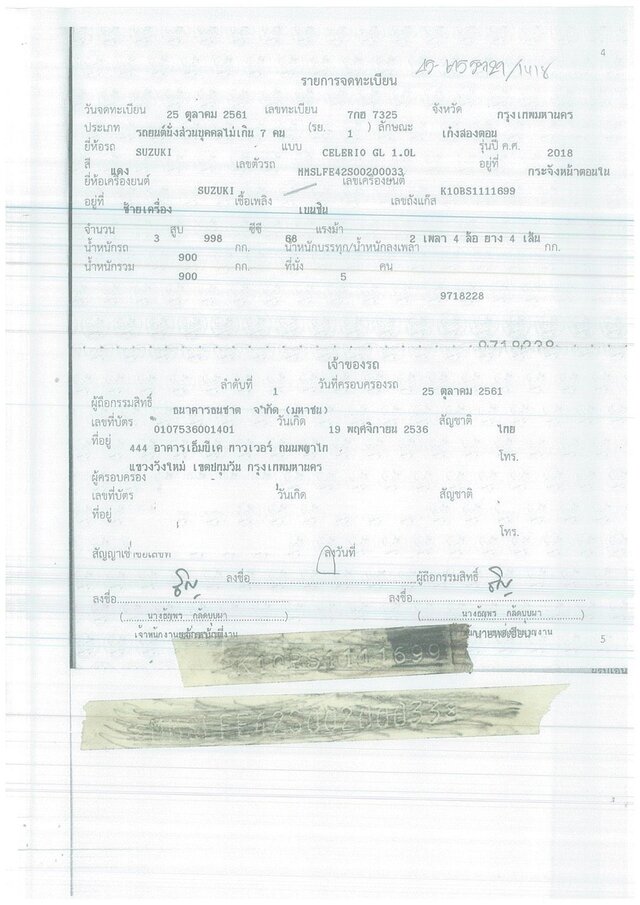 4
รายการจดทะเบียน
วันจดทะเบียน 25 ตุลาคม 2561 เลขทะเบียน 7กฮ 7325 จังหวัด กรุงเทพมหานคร
ประเภท รถยนต์นั่งส่วนบุคคลไม่เกิน 7 คน (รย. 1 ) ลักษณะ เก๋งสองตอน
ยี่ห้อรถ SUZUKI แบบ CELERIO GL 1.0L รุ่นปี ค.ศ. 2018
สี แดง เลขตัวรถ MMSLFE42S00200033 อยู่ที่ กระจังหน้าตอนใน
ยี่ห้อเครื่องยนต์ SUZUKI เลขเครื่องยนต์ K10BS1111699
อยู่ที่ ซ้ายเครื่อง เชื้อเพลิง เบนซิน เลขถังแก๊ส
จำนวน 3 สูบ 998 ซีซี 68 แรงม้า 2 เพลา 4 ล้อ ยาง 4 เส้น
น้ำหนักรถ 900 กก. น้ำหนักบรรทุก/น้ำหนักลงเพลา กก.
น้ำหนักรวม 900 กก. ที่นั่ง 5 คน
9718228
เจ้าของรถ
ลำดับที่ 1 วันที่ครอบครองรถ 25 ตุลาคม 2561
ผู้ถือกรรมสิทธิ์ ธนาคารธนชาต จำกัด (มหาชน)
เลขที่บัตร 0107536001401 วันเกิด 19 พฤศจิกายน 2536 สัญชาติ ไทย
ที่อยู่ 444 อาคารเอ็มบีเค ทาวเวอร์ ถนนพญาไท โทร.
แขวงวังใหม่ เขตปทุมวัน กรุงเทพมหานคร
ผู้ครอบครอง
เลขที่บัตร วันเกิด สัญชาติ
ที่อยู่
โทร.
สัญญาเช่าซื้อเลขที่ ลงวันที่
ลงชื่อ ผู้ถือกรรมสิทธิ์
ลงชื่อ ลงชื่อ
5